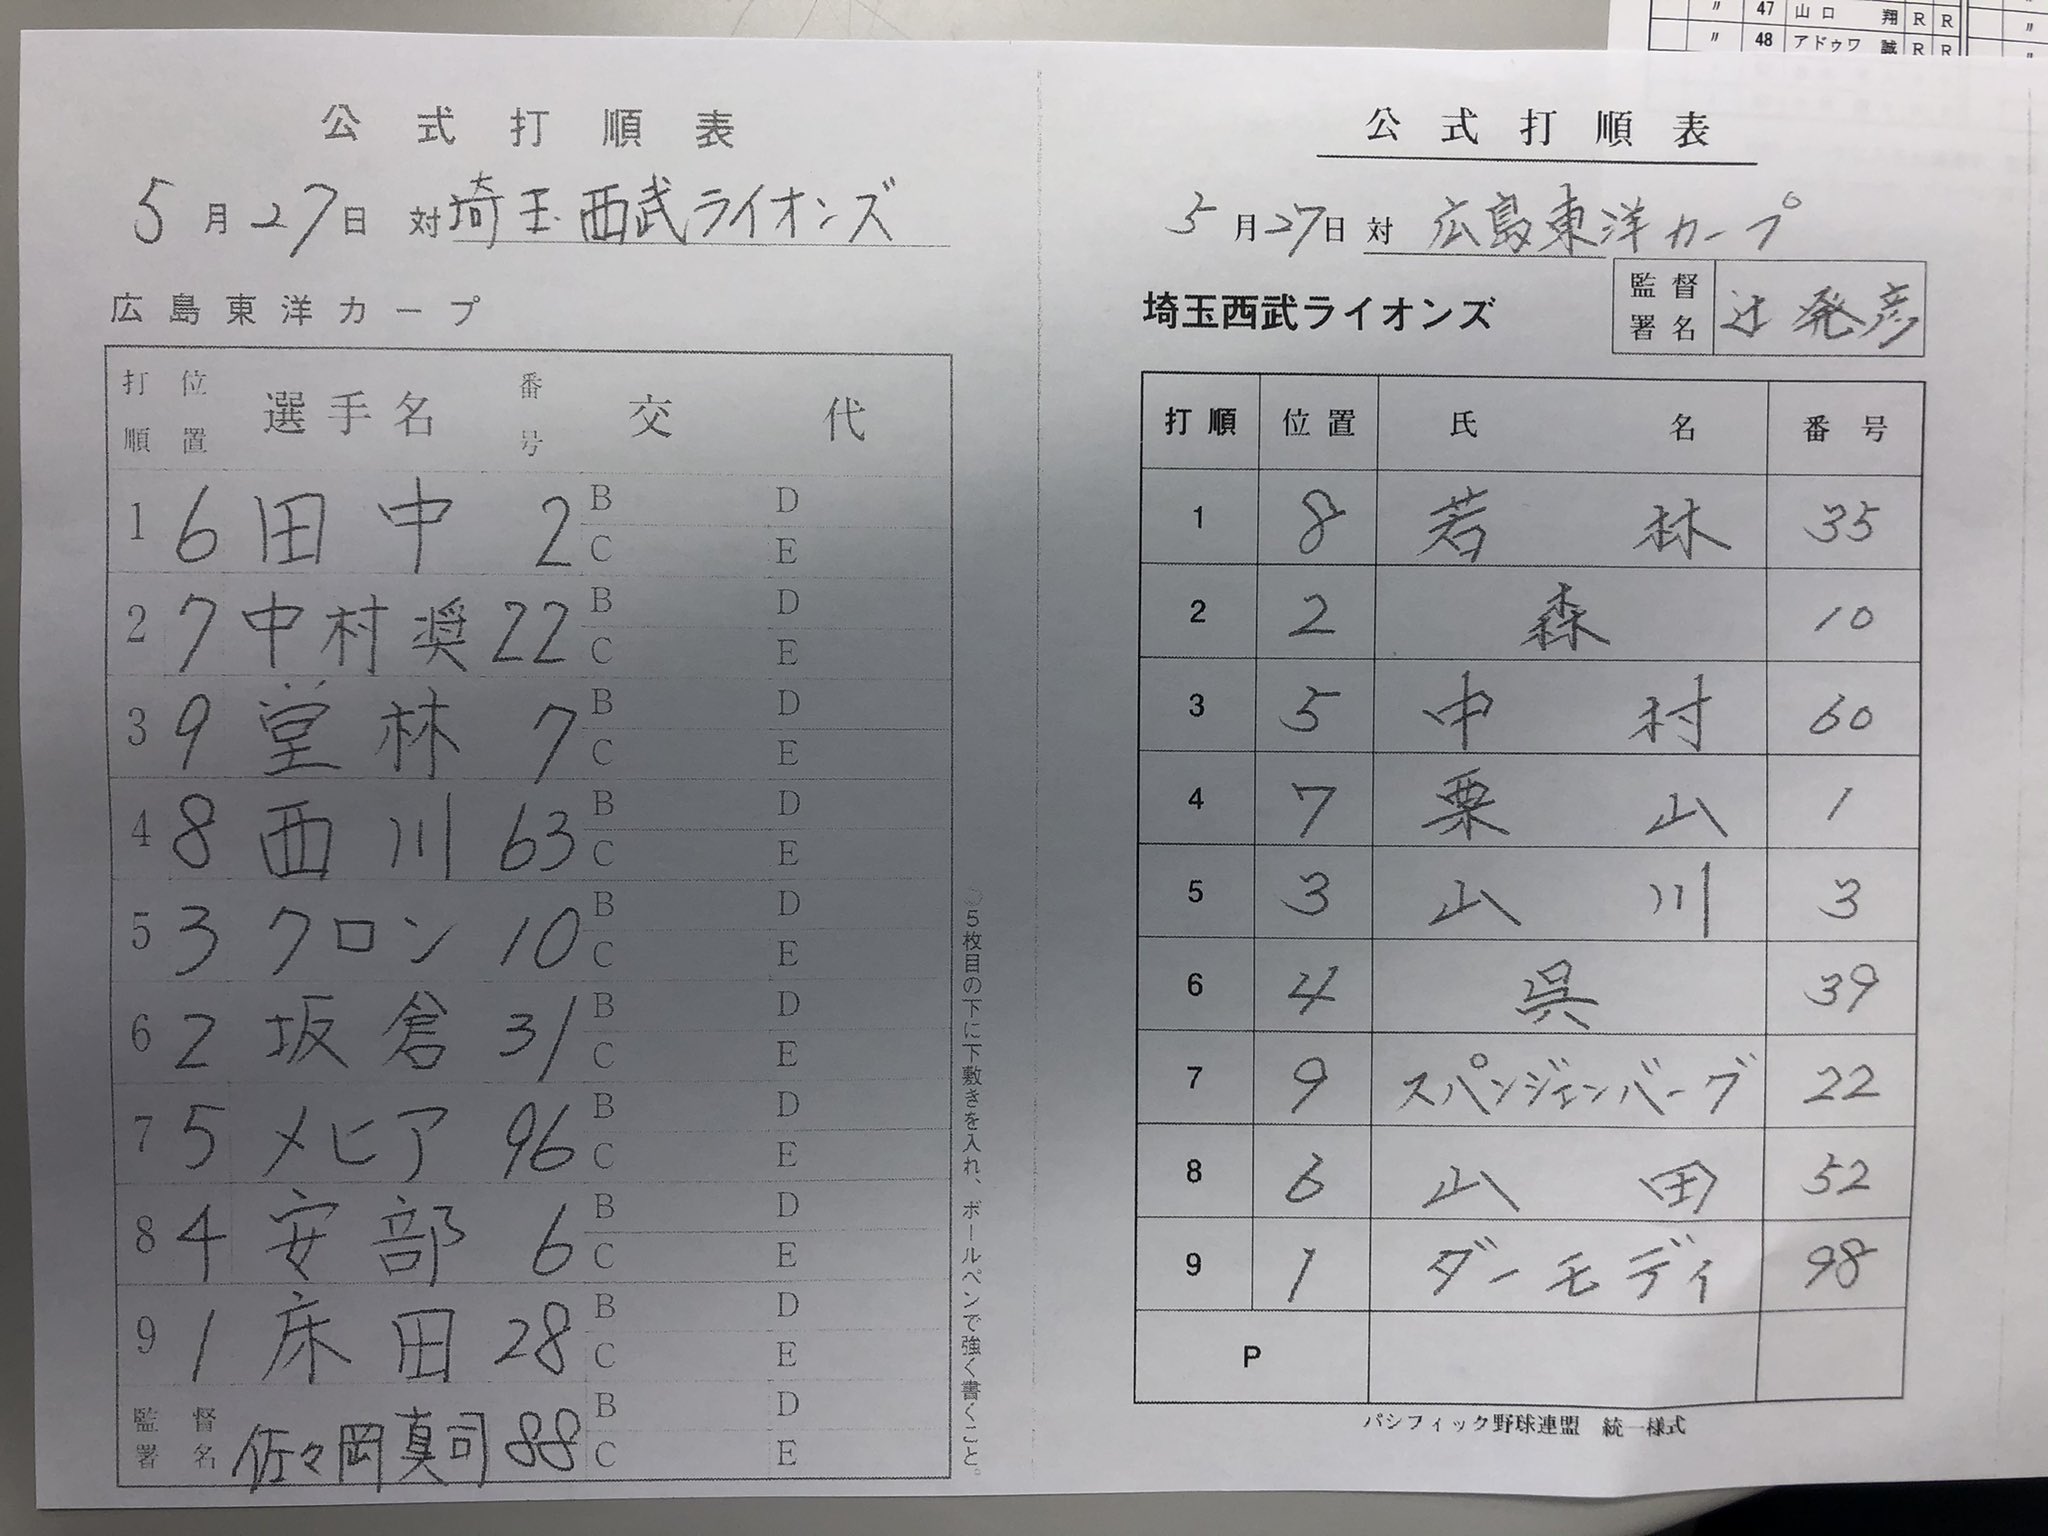 〃 47 山口 翔 R R 〃
〃 48 アドゥワ 誠 R R 〃
公式打順表
5月27日 対 埼玉西武ライオンズ
広島東洋カープ
打順 位置 選手名 番号 交代
1 6 田中 2 B C D E
2 7 中村奨 22 B C D E
3 9 堂林 7 B C D E
4 8 西川 63 B C D E
5 3 クロン 10 B C D E
6 2 坂倉 31 B C D E
7 5 メヒア 96 B C D E
8 4 安部 6 B C D E
9 1 床田 28 B C D E
監督署名 佐々岡真司 88 B C D E
5枚目の下に下敷きを入れ、ボールペンで強く書くこと。
公式打順表
5月27日 対 広島東洋カープ
埼玉西武ライオンズ 監督署名 辻発彦
打順 位置 氏名 番号
1 8 若林 35
2 2 森 10
3 5 中村 60
4 7 栗山 1
5 3 山川 3
6 4 呉 39
7 9 スパンジェンバーグ 22
8 6 山田 52
9 1 ダーモディ 98
P
パシフィック野球連盟 統一様式